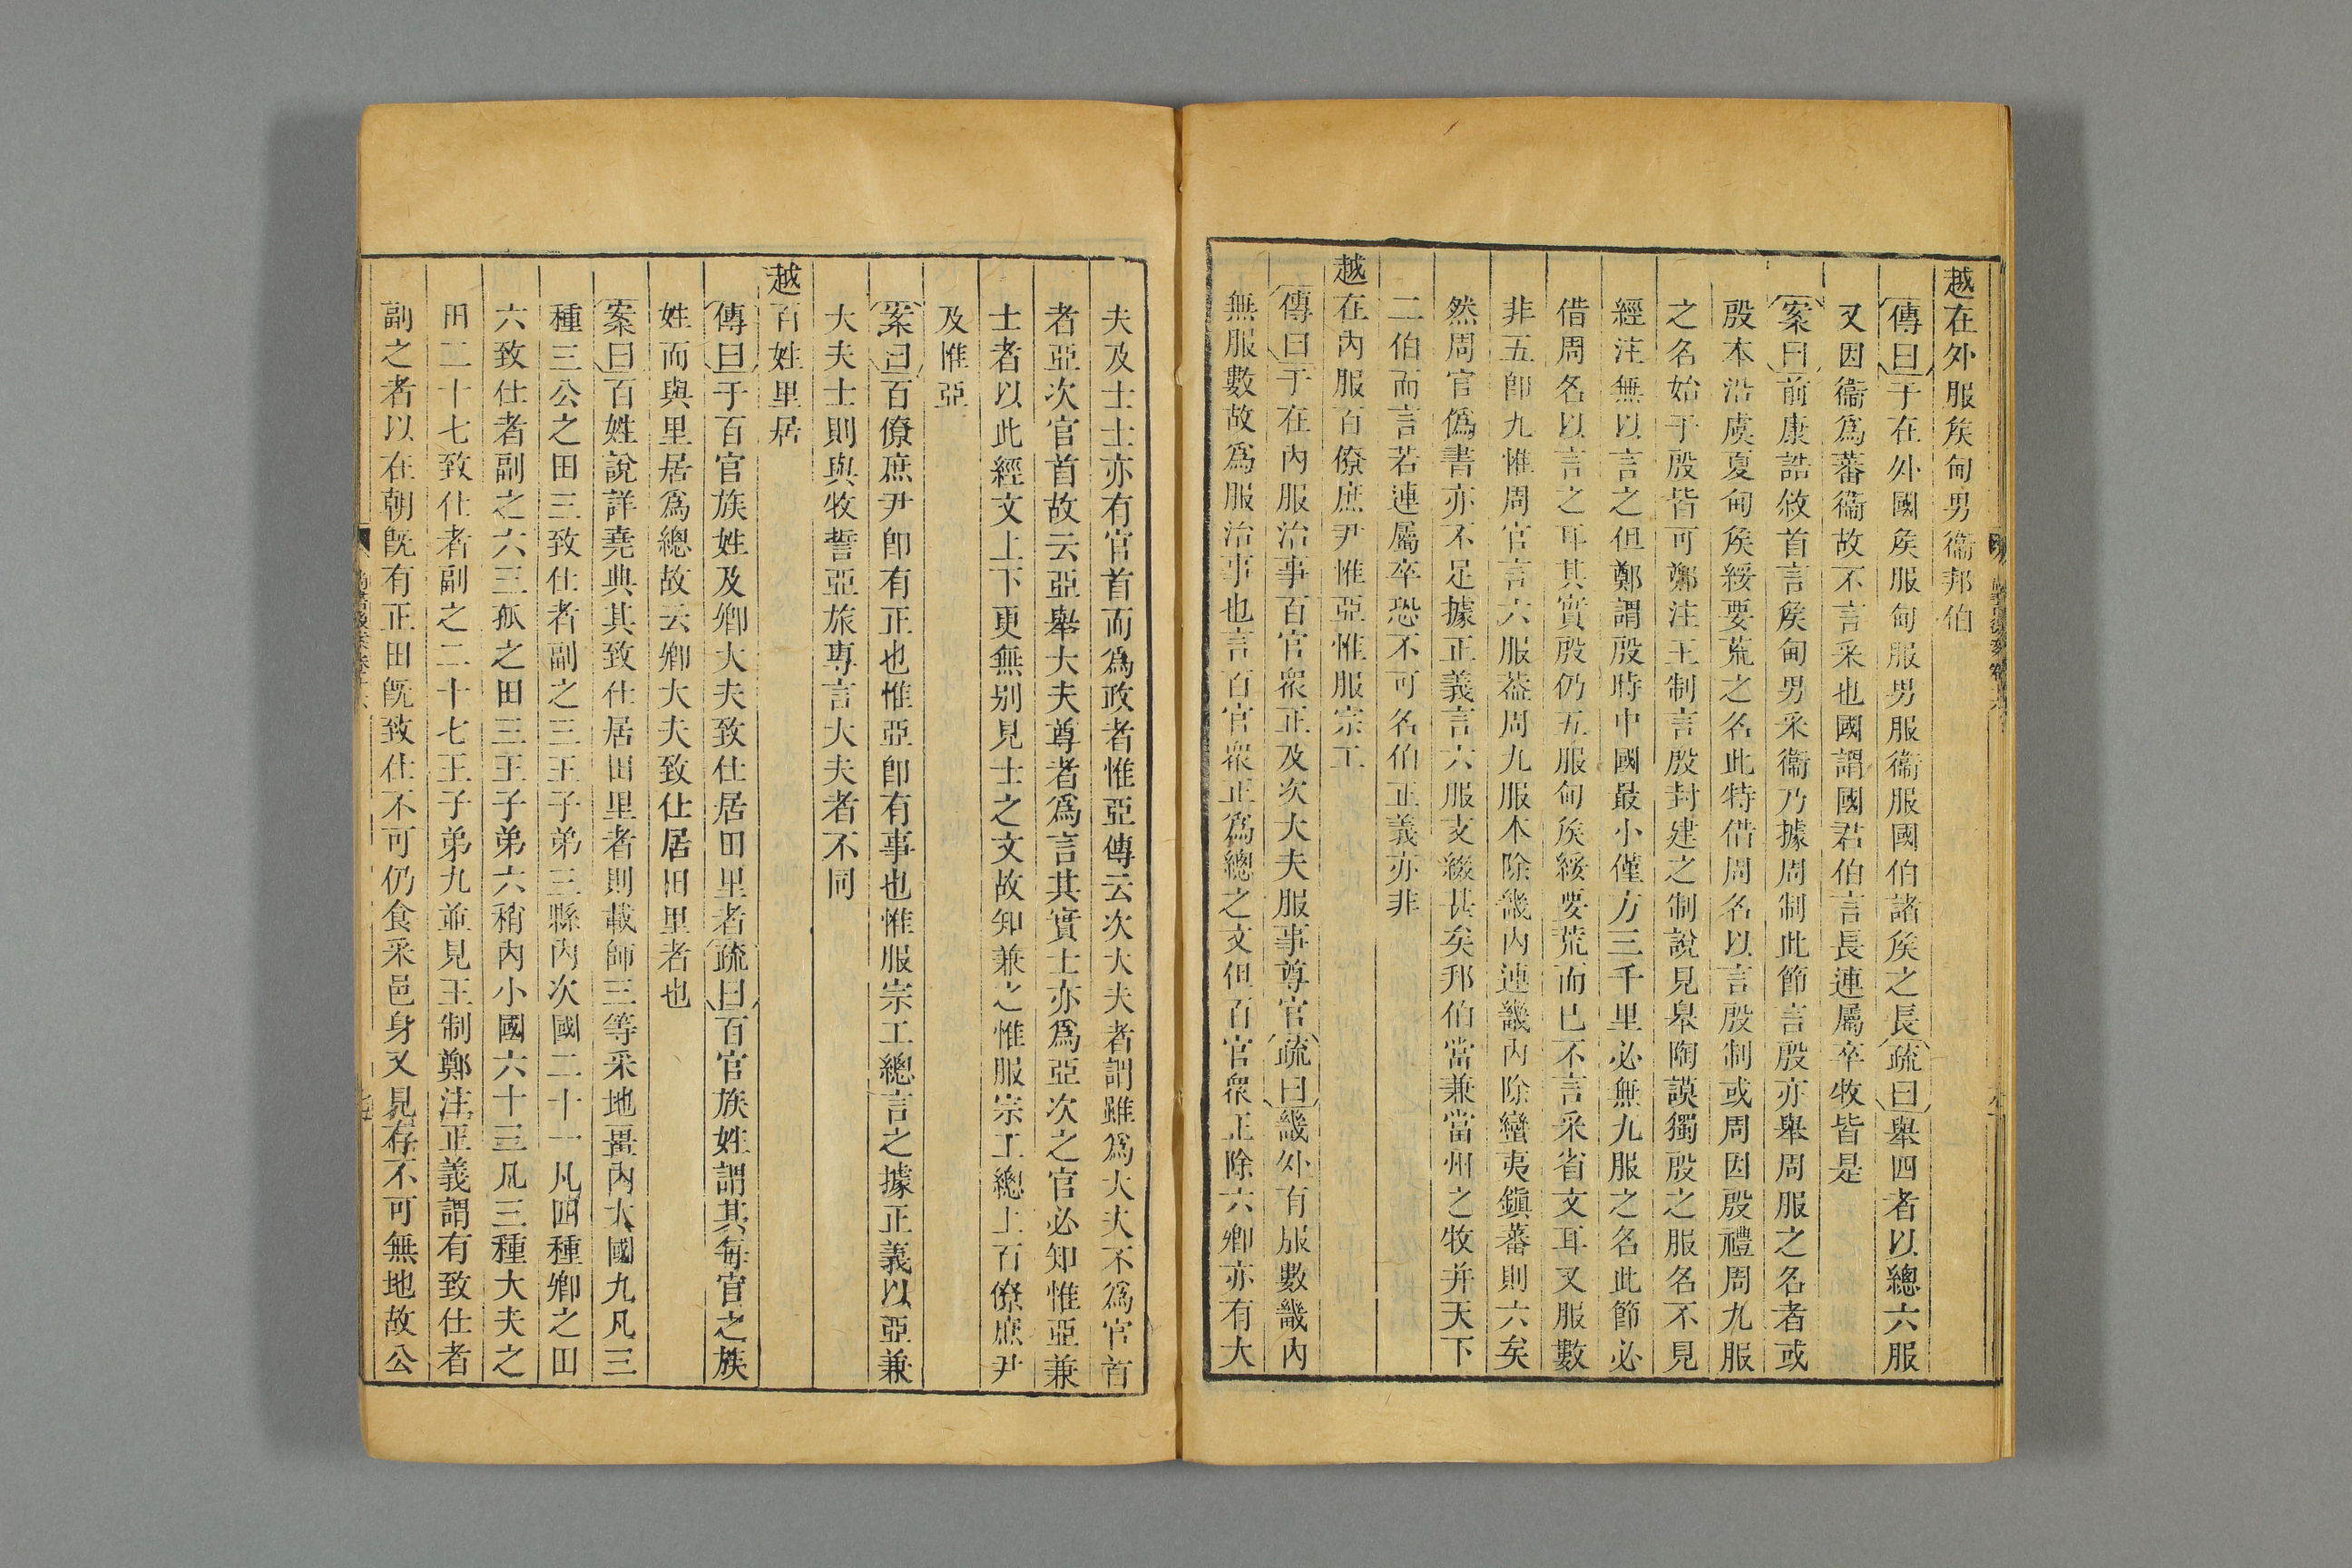 越在外服矦甸男衞邦伯
傳曰于在外國矦服甸服男服衞服國伯諸矦之長疏曰舉四者以總六服
又因衞爲蕃衞故不言采也國謂國君伯言長連屬卒牧皆是
案曰前康誥敘首言矦甸男采衞乃據周制此節言殷亦舉周服之名者或
殷本沿虞夏甸矦綏要荒之名此特借周名以言殷制或周因殷禮周九服
之名始于殷皆可鄭注王制言殷封建之制說見皋陶謨獨殷之服名不見
經注無以言之但鄭謂殷時中國最小僅方三千里必無九服之名此節必
借周名以言之耳其實殷仍五服甸矦綏要荒而已不言采省文耳又服數
非五卽九惟周官言六服葢周九服本除畿內連畿內除蠻夷鎭蕃則六矣
然周官僞書亦不足據正義言六服支綴甚矣邦伯當兼當州之牧并天下
二伯而言若連屬卒恐不可名伯正義亦非
越在內服百僚庶尹惟亞惟服宗工
傳曰于在內服治事百官衆正及次大夫服事尊官疏曰畿外有服數畿內
無服數故爲服治事也言百官衆正爲總之文但百官衆正除六卿亦有大
夫及士士亦有官首而爲政者惟亞傳云次大夫者謂雖爲大夫不爲官首
者亞次官首故云亞舉大夫尊者爲言其實士亦爲亞次之官必知惟亞兼
士者以此經文上下更無別見士之文故知兼之惟服宗工總上百僚庶尹
及惟亞
案曰百僚庶尹卽有正也惟亞卽有事也惟服宗工總言之據正義以亞兼
大夫士則與牧誓亞旅專言大夫者不同
越百姓里居
傳曰于百官族姓及卿大夫致仕居田里者疏曰百官族姓謂其每官之族
姓而與里居爲總故云卿大夫致仕居田里者也
案曰百姓說詳堯典其致仕居田里者則載師三等采地畺內大國九凡三
種三公之田三致仕者副之三王子弟三縣內次國二十一凡四種卿之田
六致仕者副之六三孤之田三王子弟六稍內小國六十三凡三種大夫之
田二十七致仕者副之二十七王子弟九並見王制鄭注正義謂有致仕者
副之者以在朝旣有正田旣致仕不可仍食采邑身又見存不可無地故公